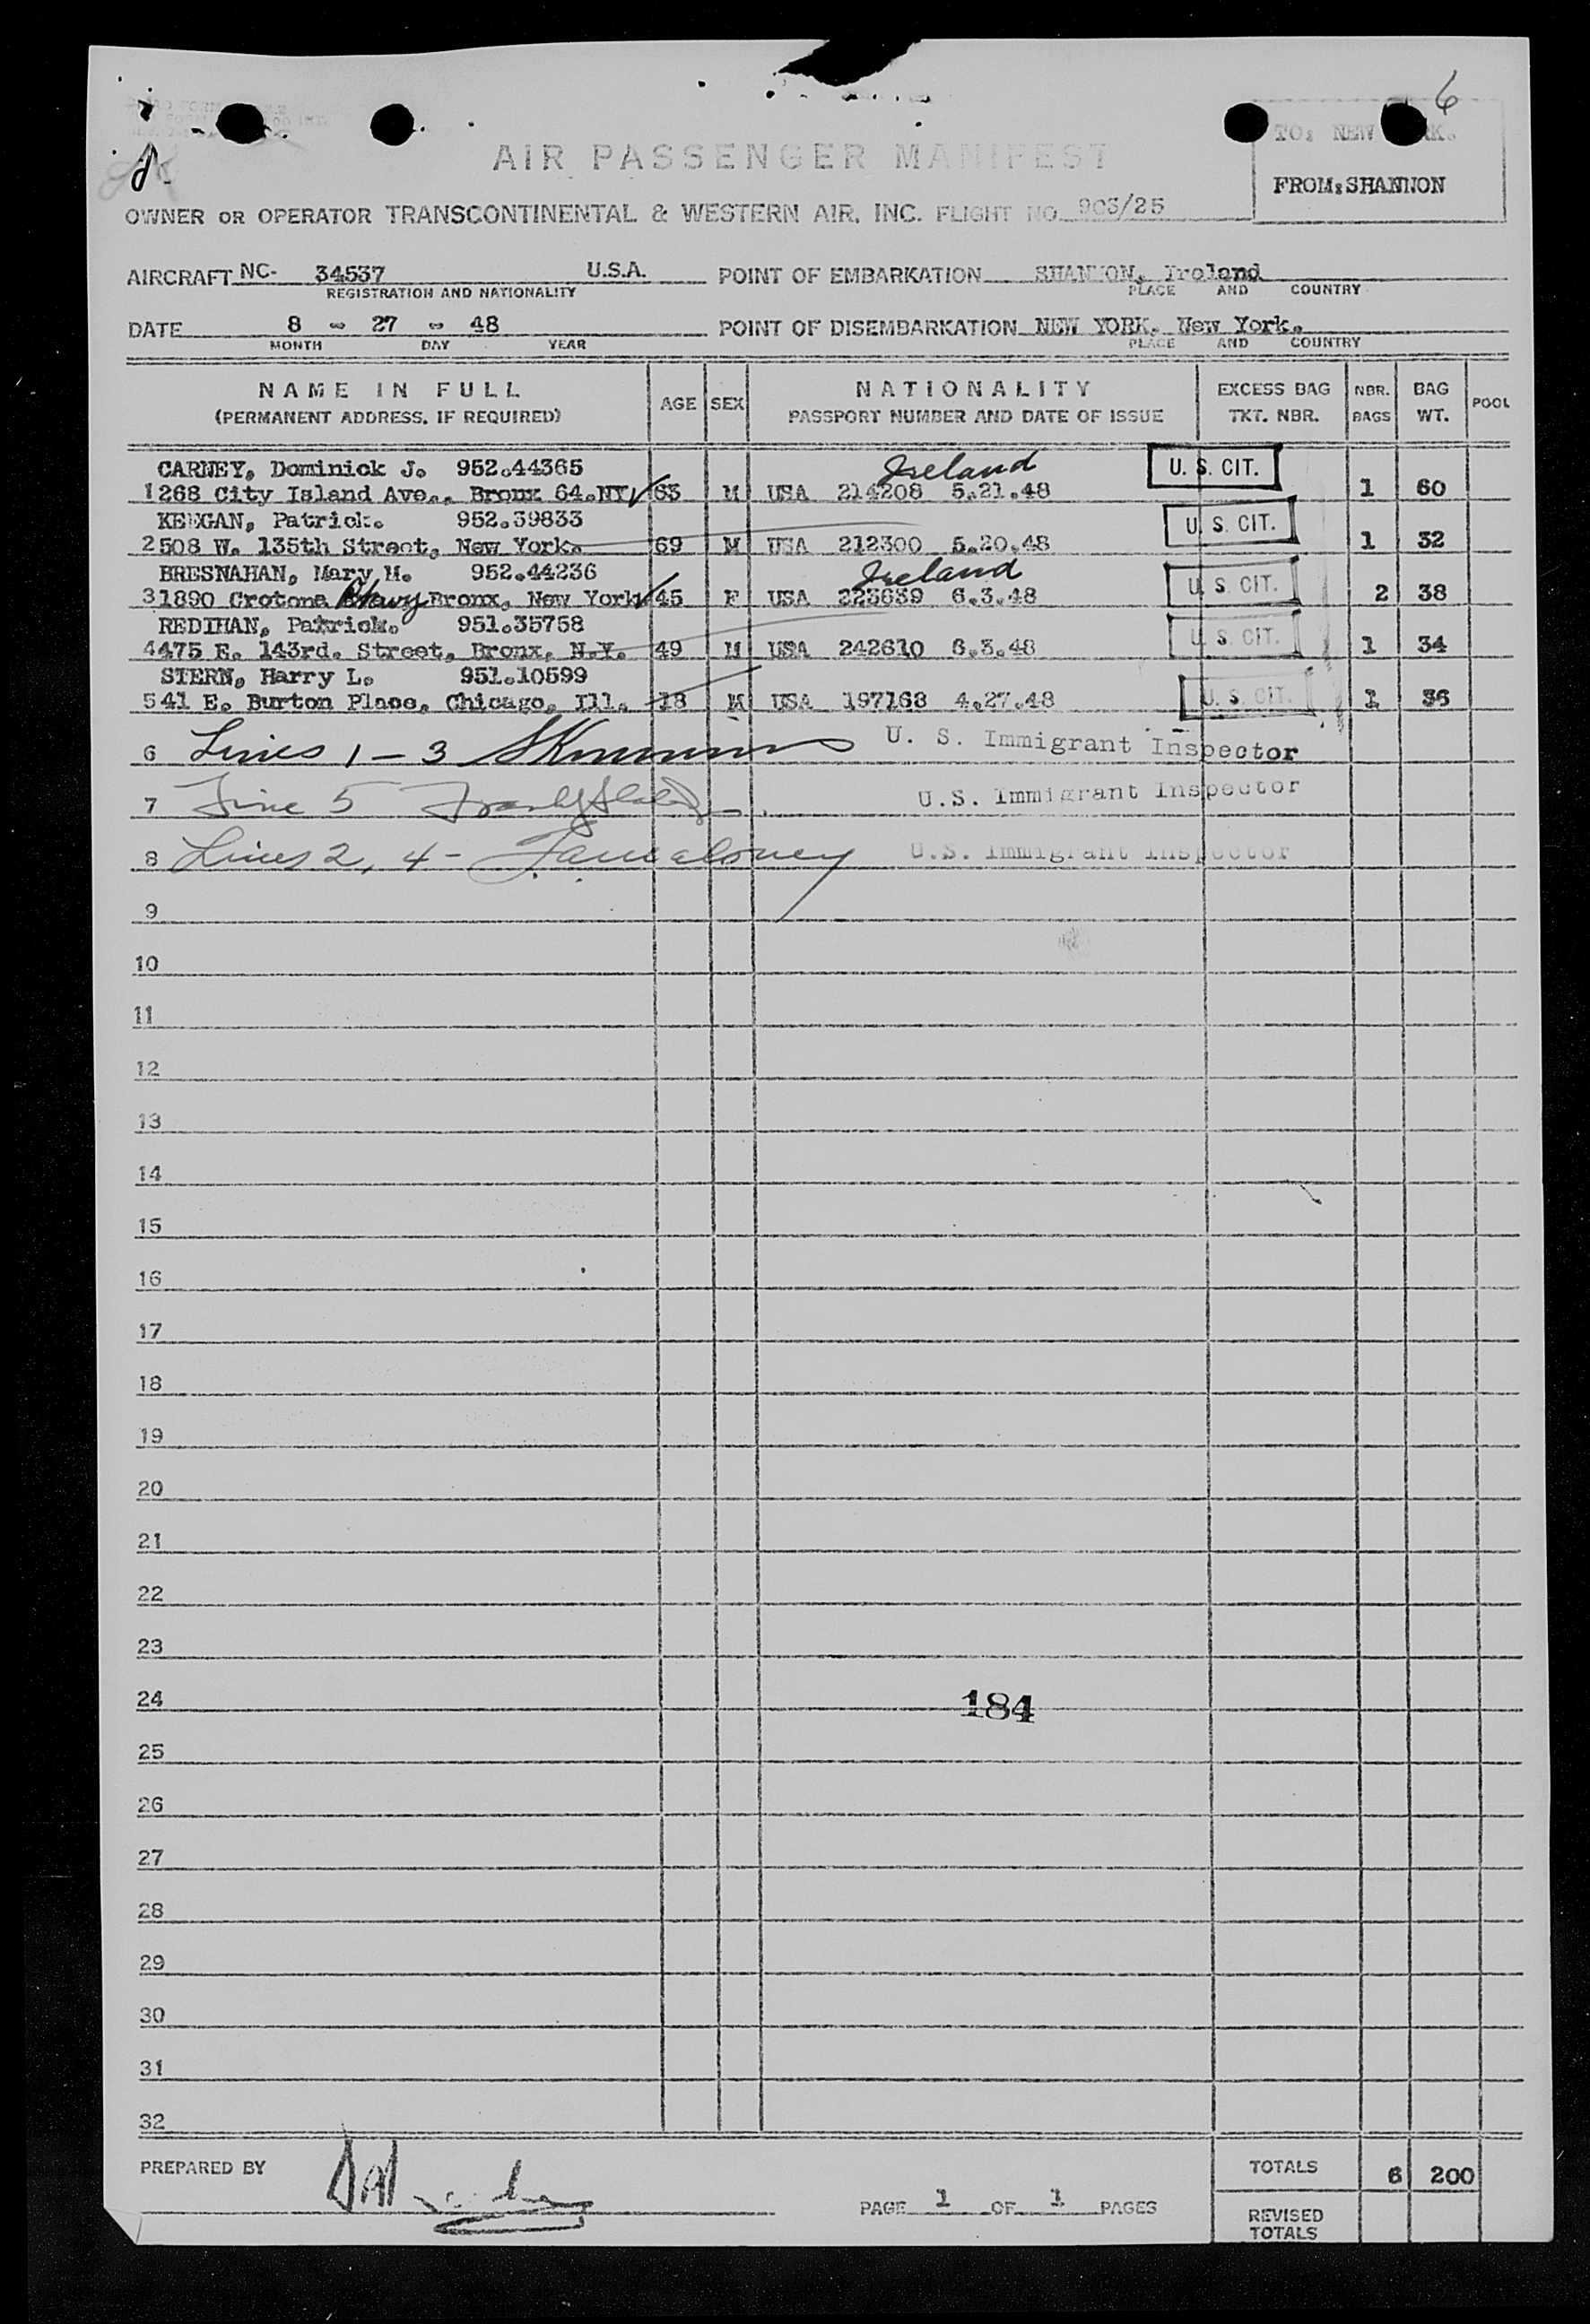 6
TO: NEW YORK.
FROM:SHANNON
AIR PASSENGER MANIFEST
OWNER OR OPERATOR TRANSCONTINENTAL & WESTERN AIR, INC. FLIGHT NO. 903/25
AIRCRAFT NC- 34537 U.S.A. POINT OF EMBARKATION SHANNON, Ireland
REGISTRATION AND NATIONALITY PLACE AND COUNTRY
DATE 8 - 27 - 48 POINT OF DISEMBARKATION NEW YORK. New York.
MONTH DAY YEAR PLACE AND COUNTRY
NAME IN FULL AGE SEX NATIONALITY EXCESS BAG NBR. BAG POOL
(PERMANENT ADDRESS, IF REQUIRED) PASSPORT NUMBER AND DATE OF ISSUE TKT. NBR. BAGS WT.
CARNEY, Dominick J. 952.44365 Ireland U. S. CIT.
1 268 City Island Ave., Bronx 64.NY, 63 M USA 214208 5.21.48 1 60
KEEGAN, Patrick. 952.39833 U. S. CIT.
2 508 W. 135th Street, New York. 69 M USA 212300 5.20.48 1 32
BRESNAHAN, Mary M. 952.44236 Ireland U. S. CIT.
3 1890 Crotona Pkwy Bronx, New York 45 F USA 223639 6.3.48 2 38
REDIHAN, Patrick. 951.35758 U. S. CIT.
4 475 E. 143rd. Street, Bronx, N.Y. 49 M USA 242610 6.3.48 1 34
STERN, Harry L. 951.10599 U. S. CIT.
5 41 E. Burton Place, Chicago, Ill. 18 M USA 197168 4.27.48 1 36
6 Lines 1 - 3 U. S. Immigrant Inspector
7 Line 5 U.S. Immigrant Inspector
8 Lines 2, 4 - U.S. Immigrant Inspector
9
10
11
12
13
14
15
16
17
18
19
20
21
22
23
24 184
25
26
27
28
29
30
31
32
PREPARED BY TOTALS 6 200
PAGE 1 OF 1 PAGES
REVISED
TOTALS